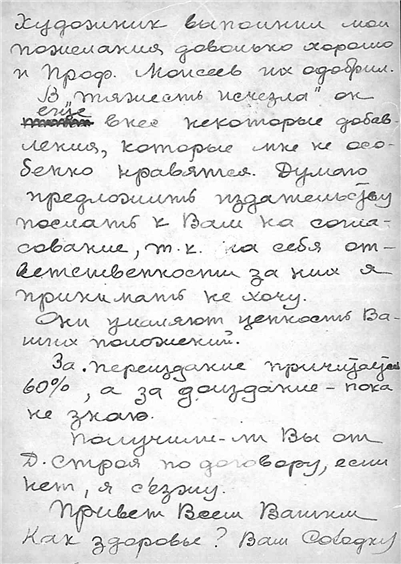 Художник выполнил мои
пожелания довольно хорошо
и Проф. Моисеев их одобрил.
В "тяжесть исчезла" он
еще внес некоторые добав-
ления, которые мне не осо-
бенно нравятся. Думаю
предложить издательству
послать к Вам на согла-
сование, т.к. на себя от-
ветственности за них я
принимать не хочу.
Они умаляют ценность Ва-
ших положений.
За переиздание причитается
60%, а за доиздание – пока
не знаю.
Получили-ли Вы от
Д. Строя по договору, если
нет, я съезжу.
Привет Всем Вашим
Как здоровье? Ваш